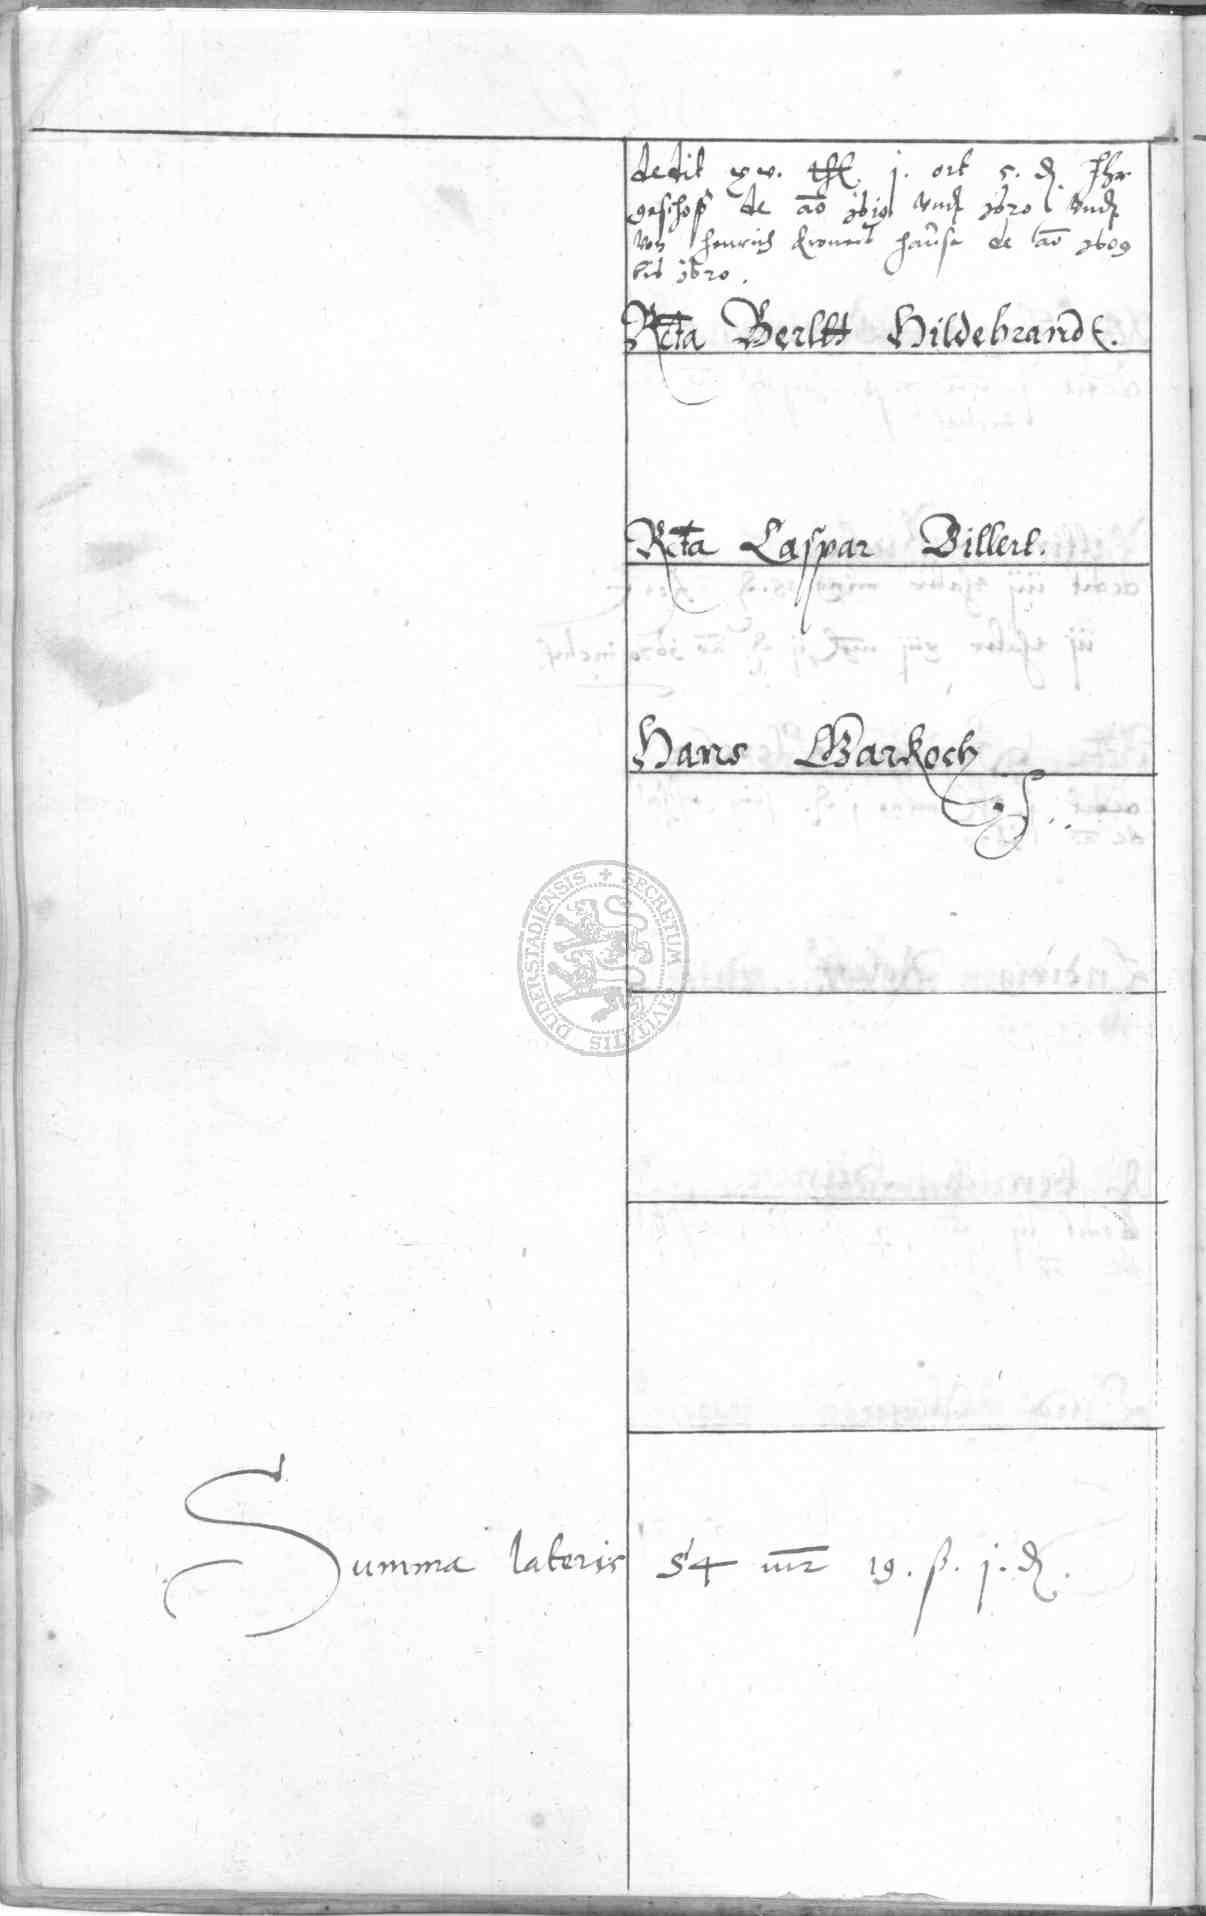 dedit xv. thl. j. ort 5. ₰ Ihr
geschoß de ao 1619 vnd 1620 vnd
von Henrich hause de ao 1609
bis 1620.
Rcta Berltt Hildebrandt.
Rcta Caspar Billerl.
Hans Warkoch
SECRETUM CIVITATIS DUDERSTADIENSIS
Summa lateris 54 mr 19. ß. j. ₰.